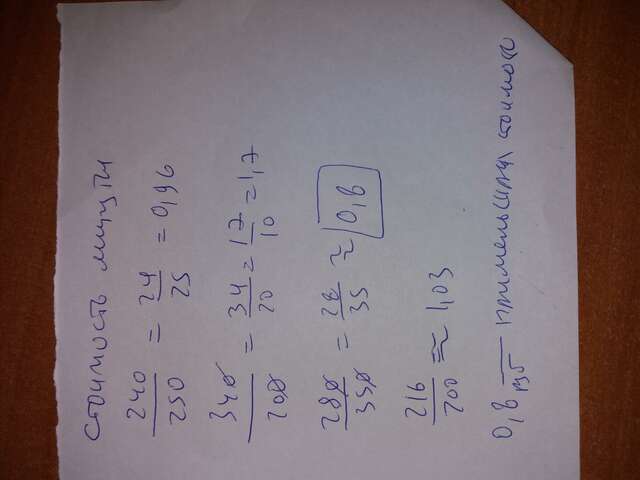 стоимость минуты
240/250 = 24/25 = 0,96
340/200 = 34/20 = 17/10 = 1,7
280/350 = 28/35 ≈ 0,8
216/200 ≈ 1,03
0,8 руб — наименьшая стоимость